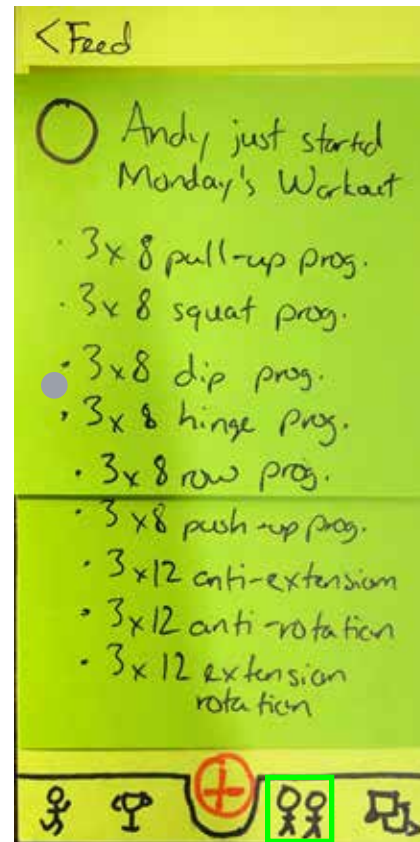 < Feed
Andy just started
Monday's Workout
· 3x8 pull-up prog.
· 3x8 squat prog.
· 3x8 dip prog.
· 3x8 hinge prog.
· 3x8 row prog.
· 3x8 push-up prog.
· 3x12 anti-extension
· 3x12 anti-rotation
· 3x12 extension
rotation